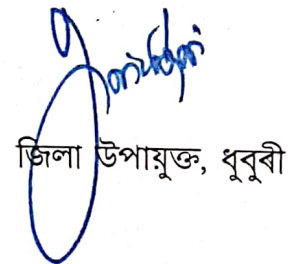 জিলা উপায়ুক্ত, ধুবুৰী